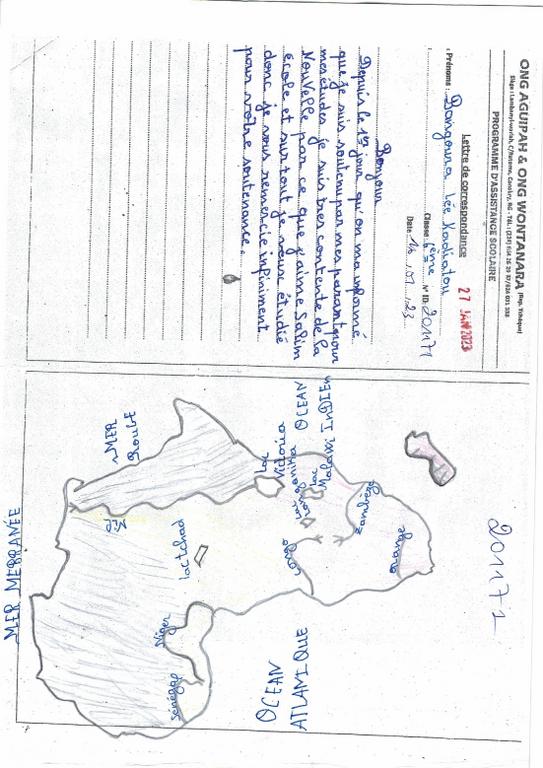 ONG AGUIPAH & ONG WONTANARA (Rep. Tchèque)
PROGRAMME D'ASSISTANCE SCOLAIRE
Lettre de correspondance
27 JAN 2023
Prénoms : Bangoura Lée Kadiatou
Classe 6ème N° ID: 201171
Date 16 .01 .23
Bonjour
Depuis le 1er jour qu'on ma informé
que je suis soutenu par mes parant pour
mes études je suis tres contente de la
Nouvelle par ce que j'aime Salim
école et sur tout je veux étudié
donc je vous remercie infiniment
pour votre soutenance.
201171
MER MEBRANÉE
MER
Rouge
Nil
lac tchad
Niger
Sénégal
OCEAN
ATLANIQUE
OCEAN
INDIEN
Lac
Victoria
Lac
Tanganika
lac
Malawi
Congo
Zambèze
orange